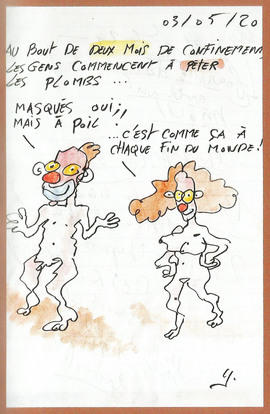 03/05/20
AU BOUT DE DEUX MOIS DE CONFINEMENT,
LES GENS COMMENCENT À PÉTER
LES PLOMBS...
MASQUÉS OUI,,
MAIS À POIL
...C'EST COMME SA À
CHAQUE FIN DU MONDE!
Y.